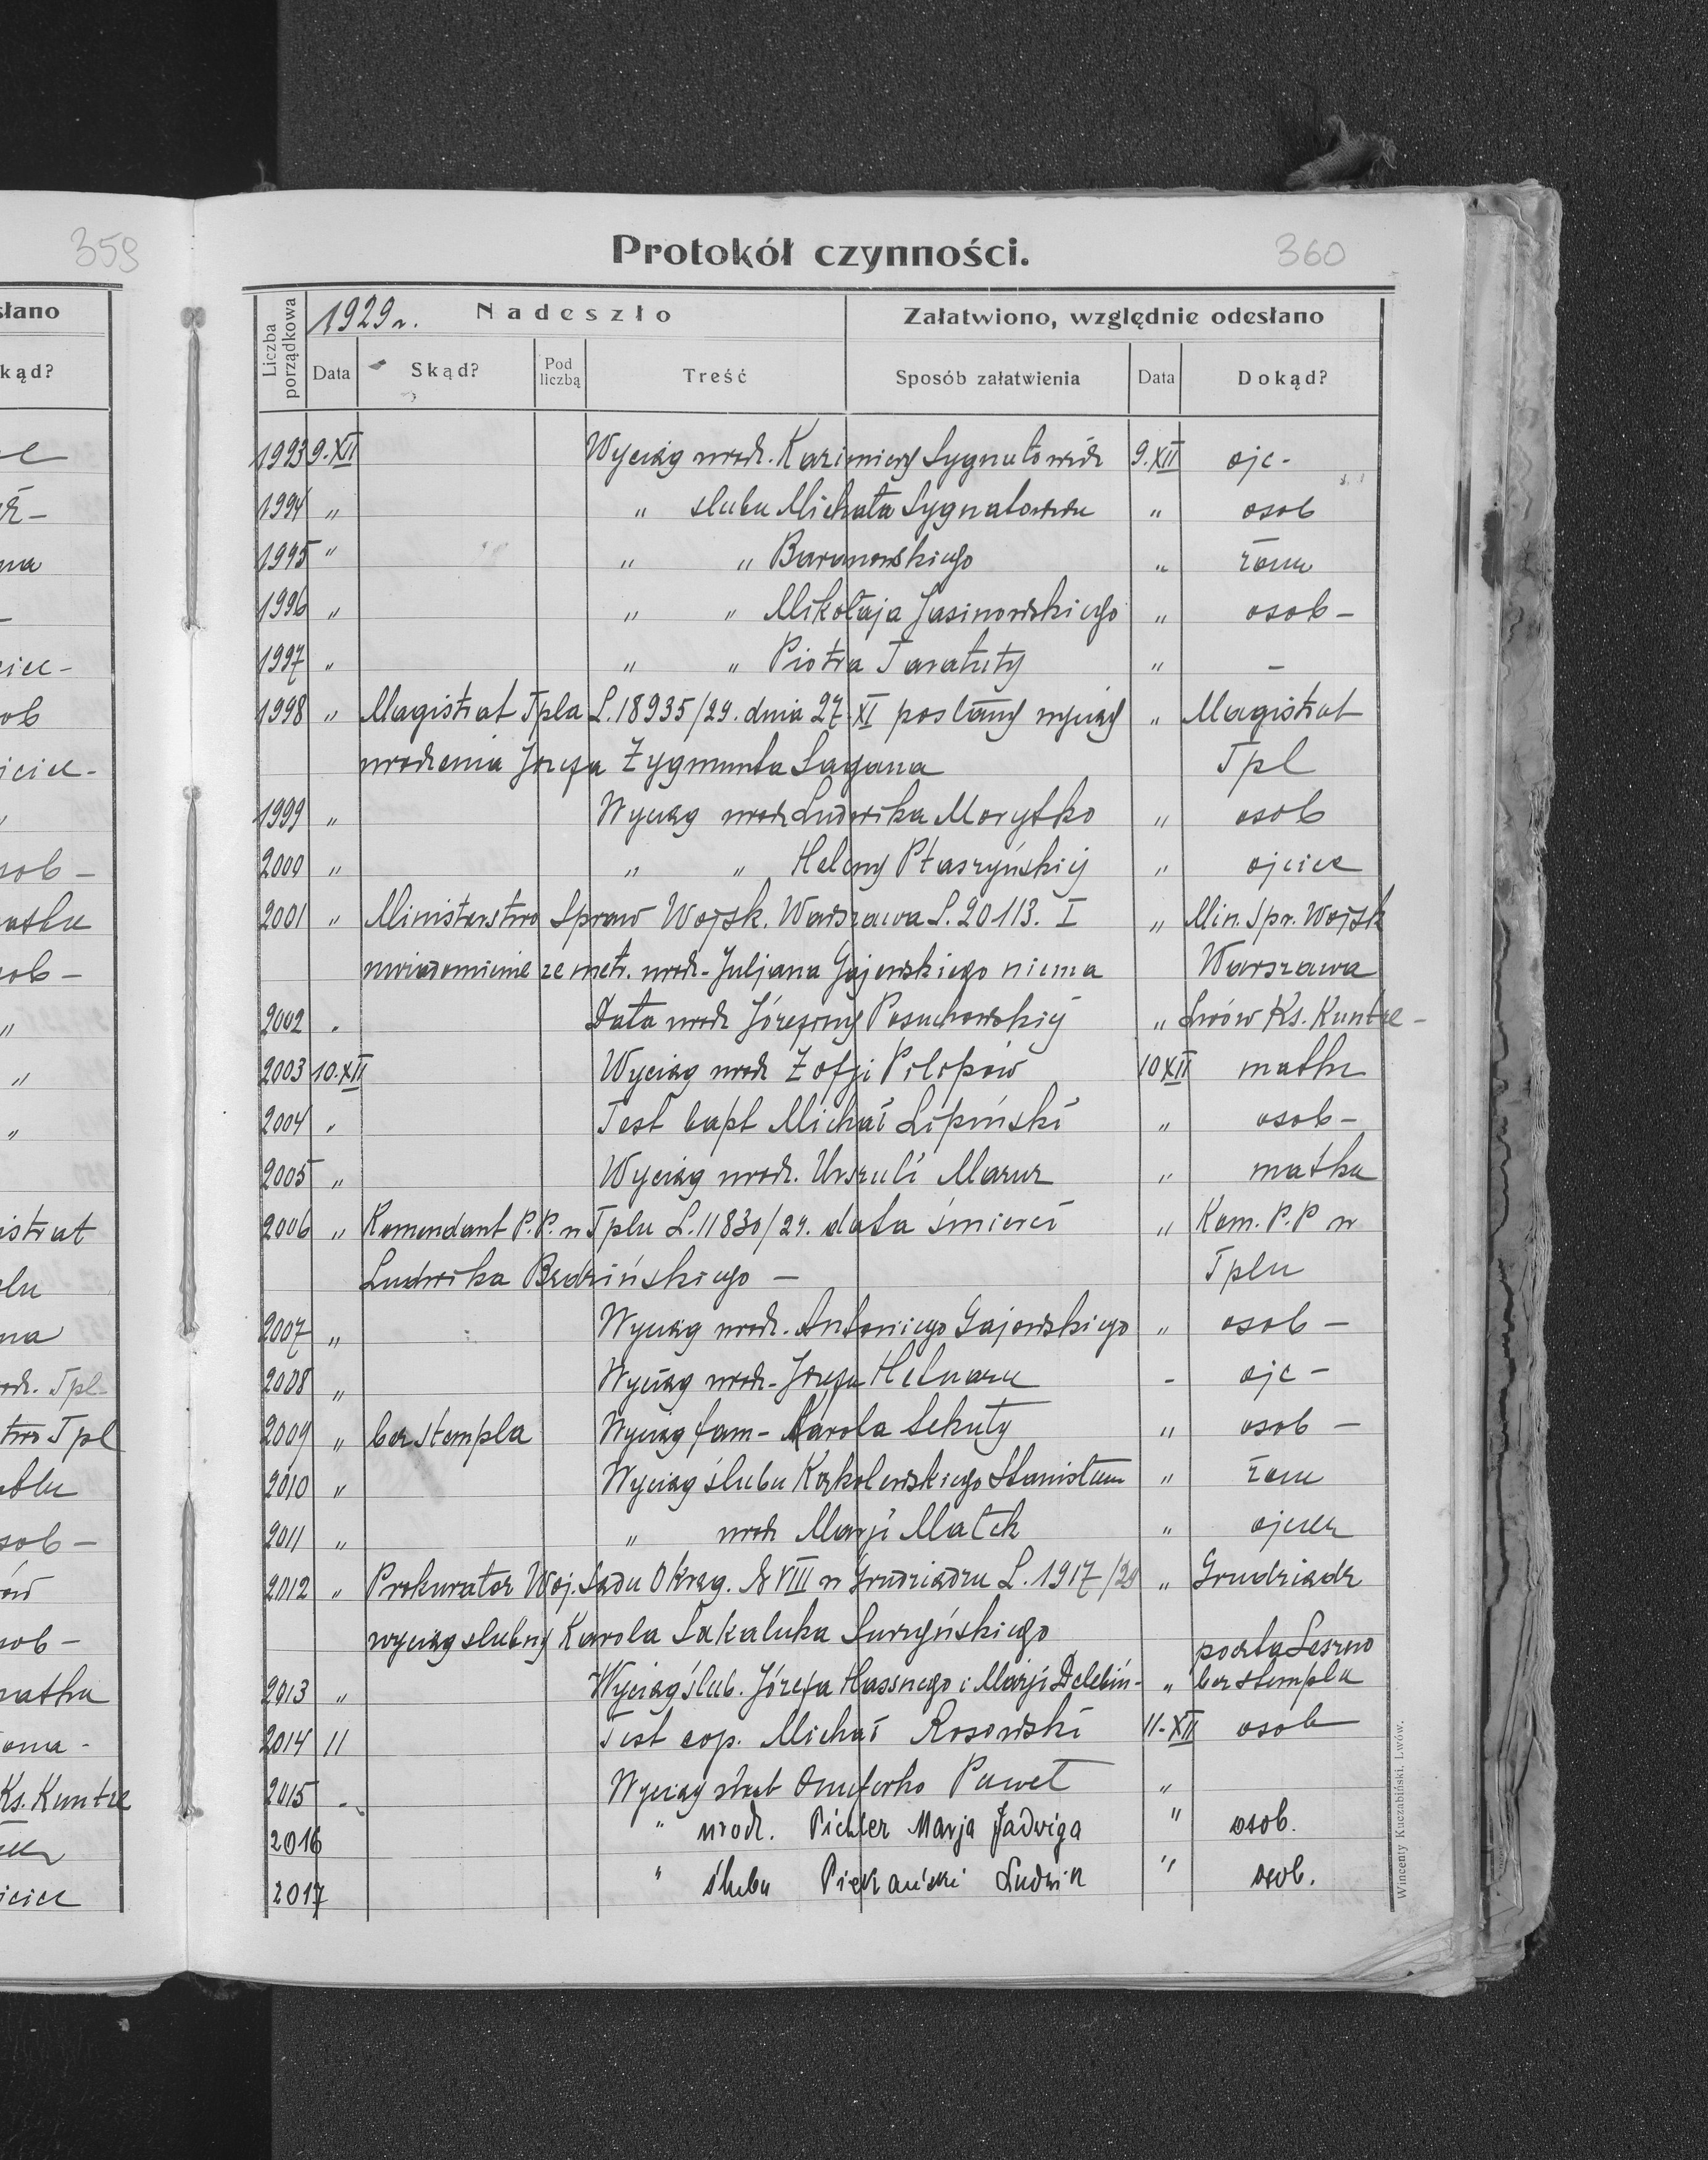 359
360
Protokół czynności.
słano
kąd?
Liczba porządkowa
1929 r. Nadeszło
Załatwiono, względnie odesłano
Data Skąd? Pod liczbą Treść Sposób załatwienia Data Dokąd?
1993 9.XII Wyciąg urodz. Kazimierz Sygnatowicz 9.XII ojc-
1994 " " ślubu Michała " osob
1995 " " " Baranowskiego " żona
1996 " " " Mikołaja Jasinowskiego " osob-
1997 " " " Piotra Taratuty " -
1998 " Magistrat Tpla L.18935/29. dnia 27.XI posłany wyciąg " Magistrat
urodzenia Józefa Zygmunta Sagana Tpl
1999 " Wyciąg urodz Ludwika Morytko " osob
2000 " " " Heleny Ptaszyńskiej " ojciec
2001 " Ministerstwo Spraw Wojsk. Warszawa L.20113. I " Min. Spr. Wojsk
uwiadomienie ze metr. urodz- Juljana Gajewskiego niema Warszawa
2002 . Data urodz Józefiny Posuchowskiej " Lwów Ks. Kuntze-
2003 10.XII Wyciąg urodz Zofji Pilipów 10 XII matka
2004 . Test bapt Michał Lipiński " osob-
2005 " Wyciąg urodz. Urszuli Mazur " matka
2006 " Komendant P.P. w Tplu L.11830/29. data śmierci " Kom. P.P w
Ludwika Brdzińskiego - Tplu
2007 " Wyciąg urodz. Antoniego Gajewskiego " osob-
2008 " Wyciąg urodz- Józefa - ojc-
2009 " bez stempla Wyciąg fam- Karola Sekuły " osob-
2010 " Wyciąg ślubu Kąkolewskiego Stanisława " żona
2011 " " urodz Marji Małek " ojciec
2012 " Prokurator Woj. Sądu Okrąg. № VIII w Grudziądzu L.1917/29 " Grudziądz
wyciąg ślubny Karola Sakaluka Surzyńskiego
poczta Leszno
2013 " Wyciąg ślub. Józefa Hassnego i Marji " bez stempla
2014 11 Test cop. Michał Rosowski 11-XII osob
2015 . Wyciąg ślub Onuferko Paweł "
2016 " urodz. Pichler Marja Jadwiga " osob.
2017 " ślubu Ludwik " osob.
Ks. Kuntze
Wincenty Kuczabiński, Lwów.